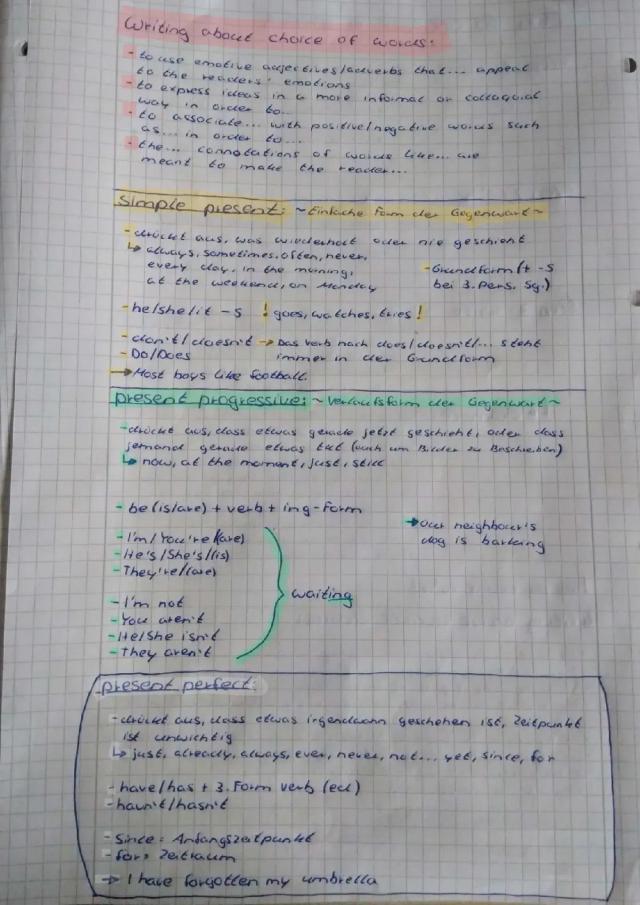 Writing about choice of words:
- to use emotive adjectives/adverbs that... appeal
to the readers' emotions
- to express ideas in a more informal or colloquial
way in order to...
- to associate... with positive/negative words such
as... in order to...
- the... connotations of words like... are
meant to make the reader...
simple present: ~Einfache Form der Gegenwart~
- drückt aus, was wiederholt oder nie geschieht
↳ always, sometimes, often, never,
every day, in the morning,
at the weekend, on Monday
- Grundform (+ -s
bei 3. Pers. Sg.)
- he/she/it -s ! goes, watches, tries !
- don't/doesn't → Das Verb nach does/doesn't/... steht
immer in der Grundform
- Do/Does
→ Most boys like football.
present progressive: ~Verlaufsform der Gegenwart~
- drückt aus, dass etwas gerade jetzt geschieht, oder dass
jemand gerade etwas tut (auch um Bilder zu Beschreiben)
↳ now, at the moment, just, still
- be (is/are) + verb + ing-Form
- I'm/You're/(are)
- He's/She's/(is)
- They're/(are)
- I'm not
- You aren't
- He/She isn't
- They aren't
waiting
→ Our neighbour's
dog is barking
present perfect:
- drückt aus, dass etwas irgendwann geschehen ist, Zeitpunkt
ist unwichtig
↳ just, already, always, ever, never, not... yet, since, for
- have/has + 3. Form verb (ed)
- havn't/hasn't
- Since = Anfangszeitpunkt
- for = Zeitraum
→ I have forgotten my umbrella